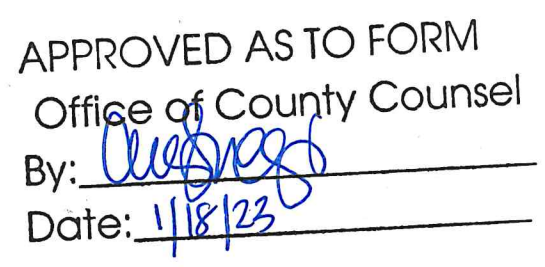 APPROVED AS TO FORM
Office of County Counsel
By:
Date: 1/18/23